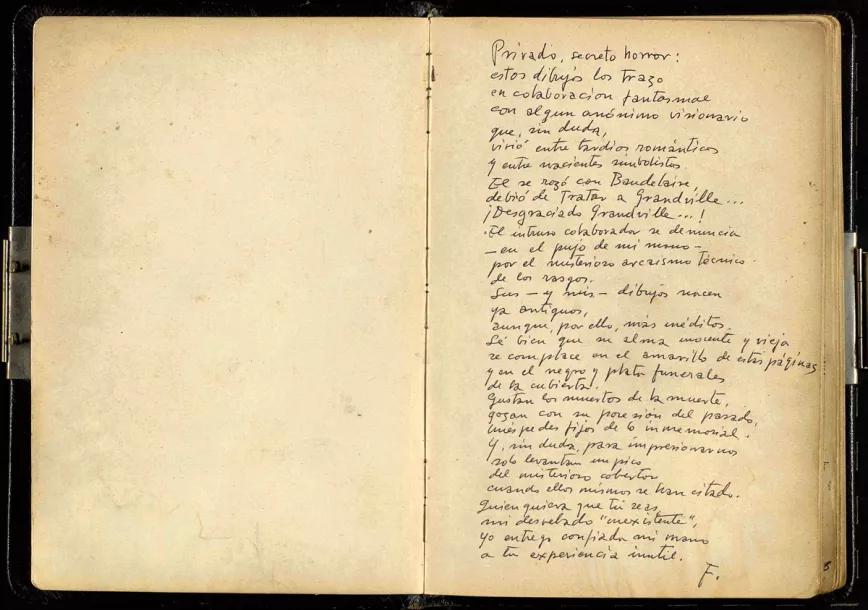 Privado, secreto horror:
estos dibujos los trazo
en colaboracion fantasmal
con algun anónimo visionario
que, sin duda,
vivió entre tardios románticos
y entre nacientes simbolistas.
El se rozó con Baudelaire,
debió de Tratar a Grandville...
¡Desgraciado Grandville...!
El intruso colaborador se denuncia
— en el pujo de mi mano —
por el misterioso arcaismo técnico
de los rasgos.
Sus — y mis — dibujos nacen
ya antiguos,
aunque, por ello, más inéditos.
Sé bien que su alma inocente y vieja
se complace en el amarillo de estas páginas
y en el negro y plata funerales
de la cubierta.
Gustan los muertos de la muerte,
gozan con su posesión del pasado,
huéspedes fijos de lo inmemorial.
Y, sin duda, para impresionarnos
solo levantan un pico
del misterioso cobertor
cuando ellos mismos se han citado.
Quien quiera que tú seas,
mi desvelado "inexistente",
yo entrego confiada mi mano
a tu experiencia inutil.
F.